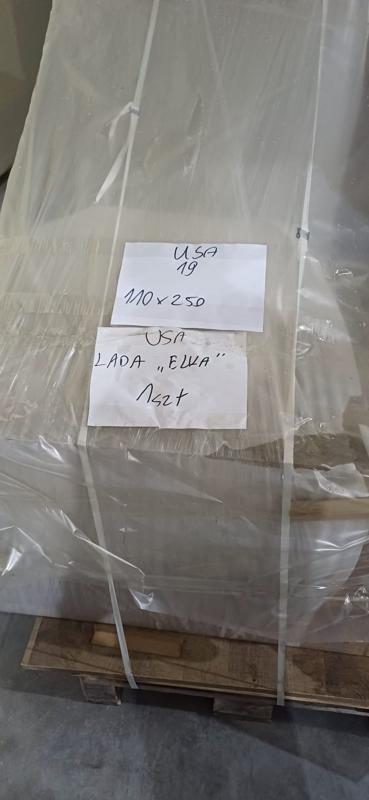 USA
19
110 x 250
USA
LADA „ELKA"
1szt